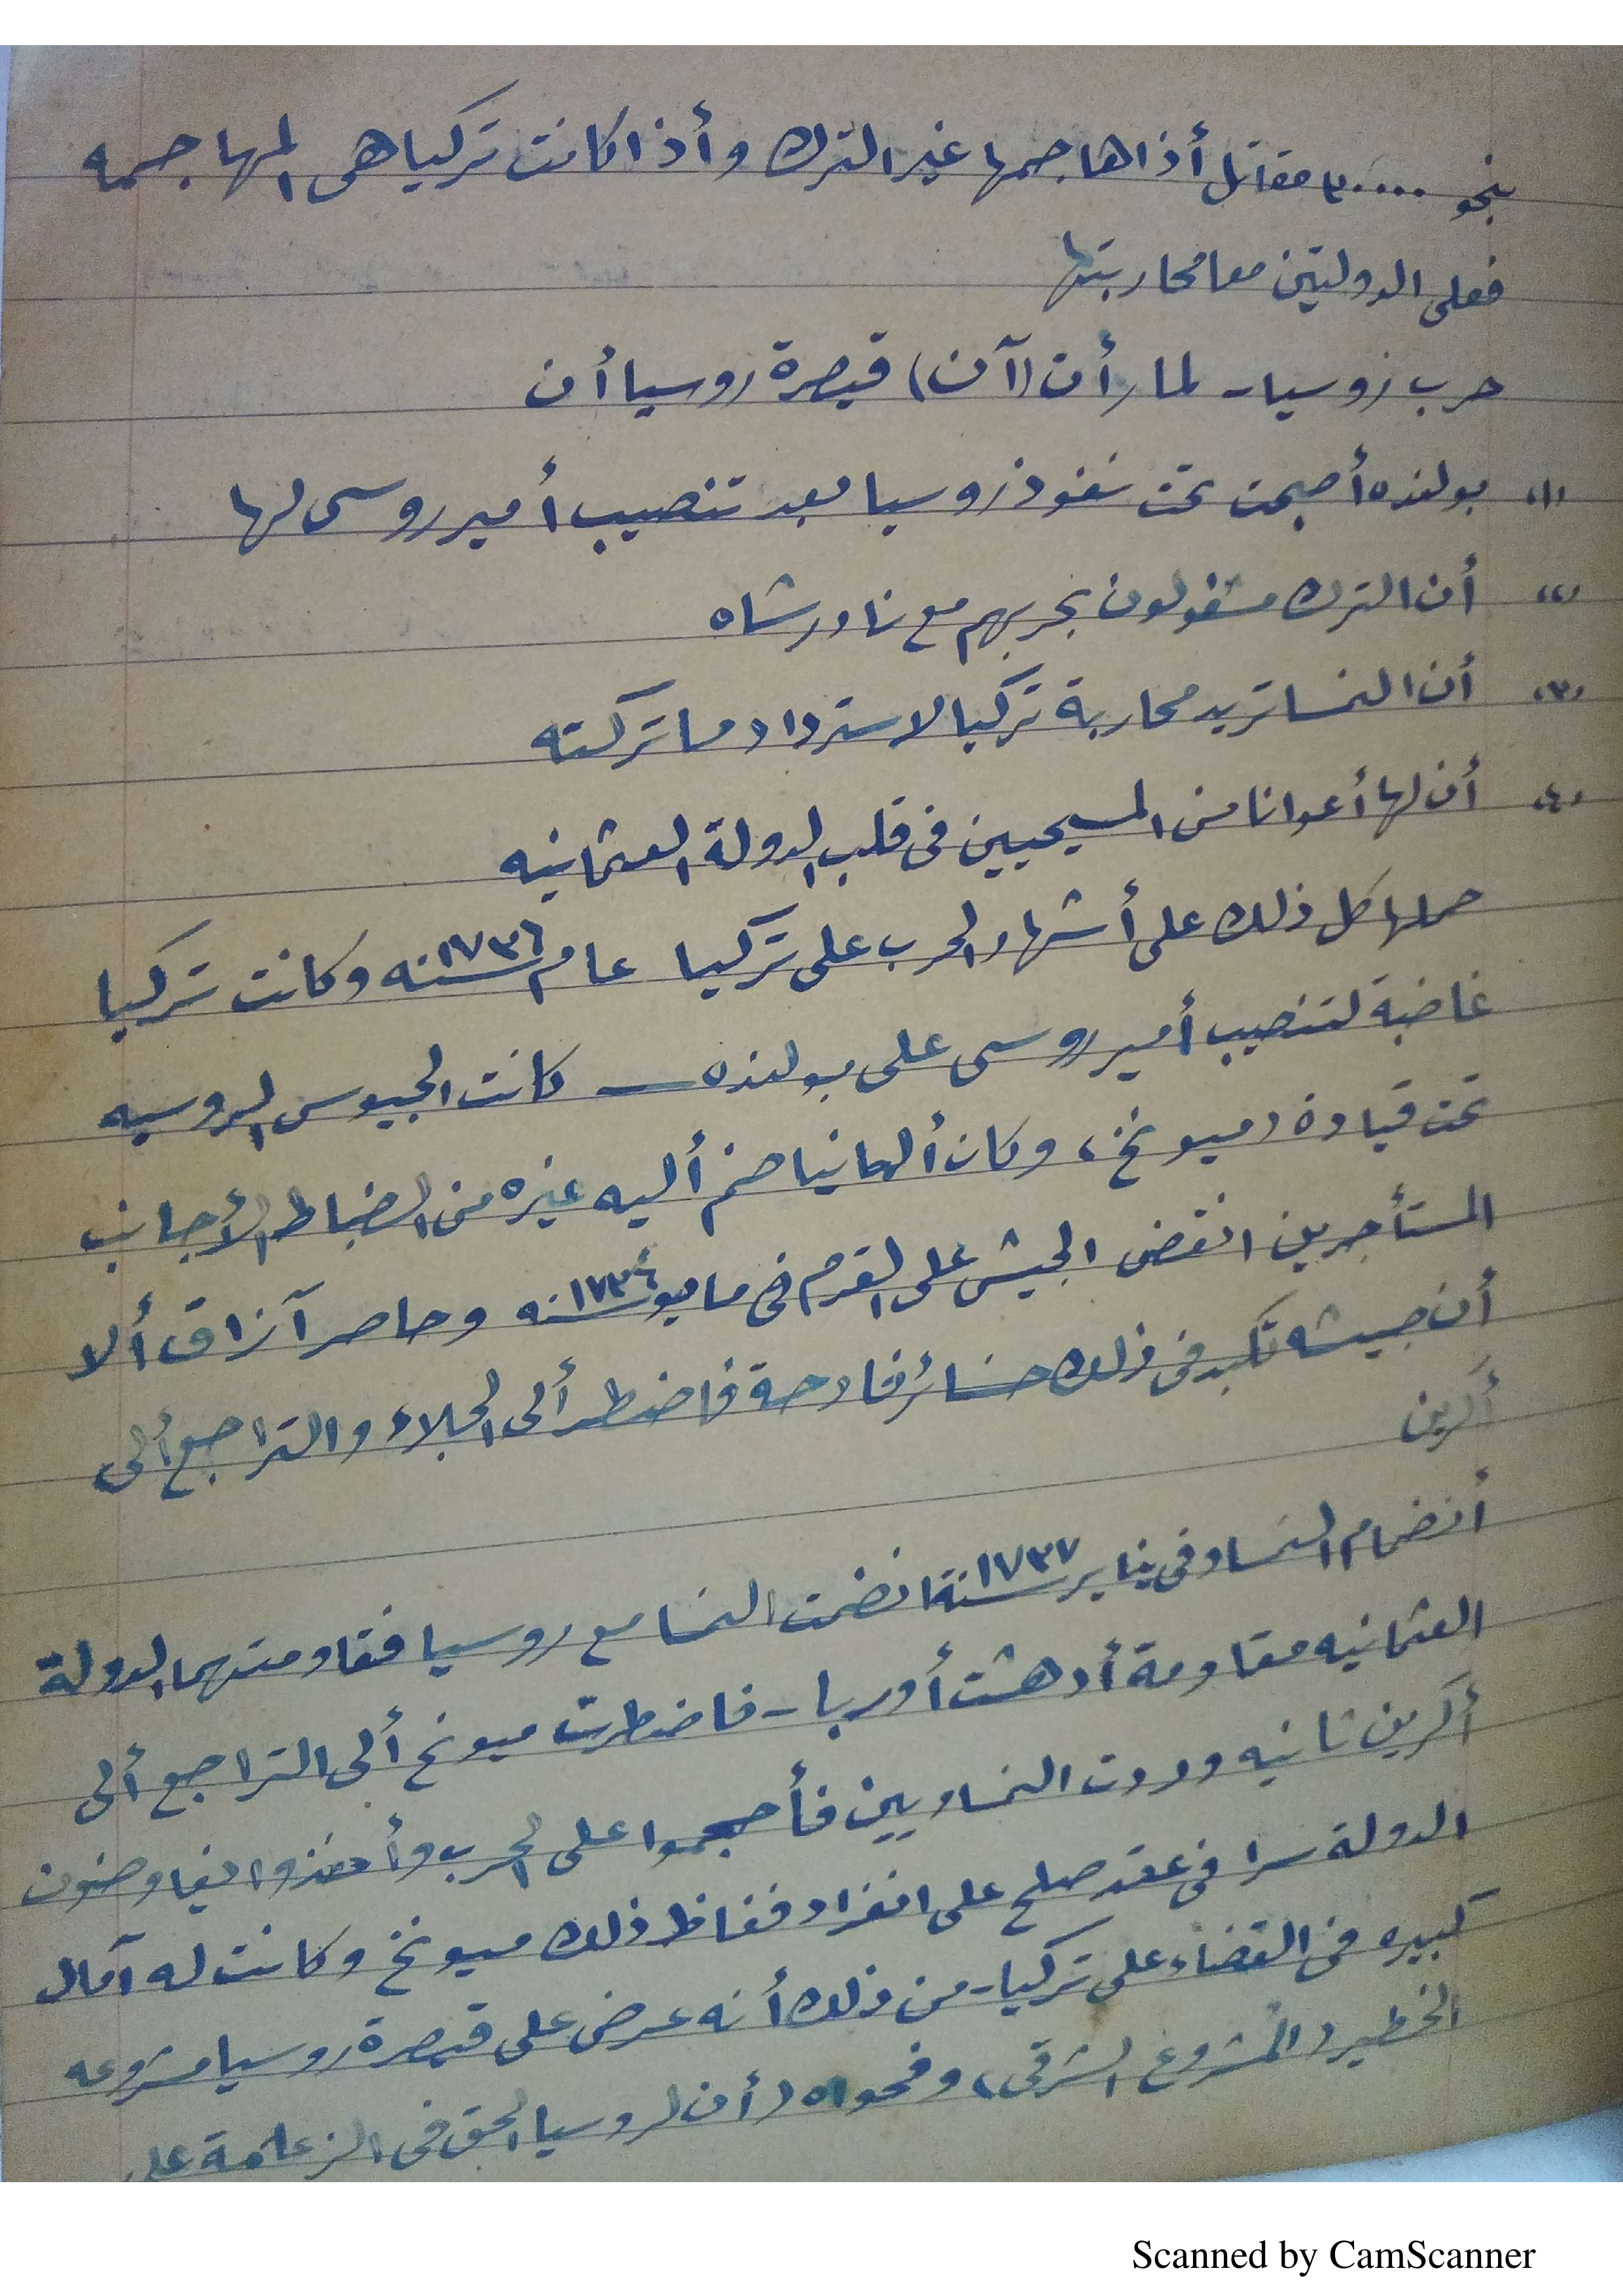 بنحو ٣٠٠٠٠ مقاتل أذا هاجمها غير الترك وأذا كانت تركيا هى المهاجمه
فعلى الدولتين معا محاربتها
حرب روسيا - لما رأت (آن) قيصرة روسيا أن
(١) بولنده أصبحت تحت نفوذ روسيا بعد تنصيب أمير روسى لها
(٢) أن الترك مشغولون بحربهم مع نادر شاه
(٣) أن النمسا تريد محاربة تركيا لاسترداد ما تركته
(٤) أن لها أعوانا من المسيحيين فى قلب الدولة العثمانيه
حملها كل ذلك على أشهار الحرب على تركيا عام سنه ١٧٣٦ وكانت تركيا
غاضبة لتنصيب أمير روسى على بولنده — كانت الجيوس الروسيه
تحت قيادة (ميونخ) وكان ألمانيا ضم أليه غيره من الضباط الأجانب
المستأجرين انقض الجيش على القرم فى مايو سنه ١٧٣٦ وحاصر آزاق ألا
أن جيشه تكبد فى ذلك خسائر فادحة فاضطر ألى الجلاء والتراجع ألى
أكرين
أنضمام النمسا وفى يناير سنة ١٧٣٧ انضمت النمسا مع روسيا فقاومتهما الدولة
العثمانيه مقاومة أدهشت أوربا - فاضطرت ميونخ ألى التراجع ألى
أكرين ثانيه وردت النمساويين فأحجموا على الحرب وأخذوا يفاوضون
الدولة سرا فى عقد صلح على انفراد فغاظ ذلك ميونخ وكانت له آمال
كبيره فى القضاء على تركيا - من ذلك أنه عرض على قيصرة روسيا مشروعه
الخطير (المشروع الشرقى) وفحواه (أن لروسيا الحق فى الزعامة على
Scanned by CamScanner